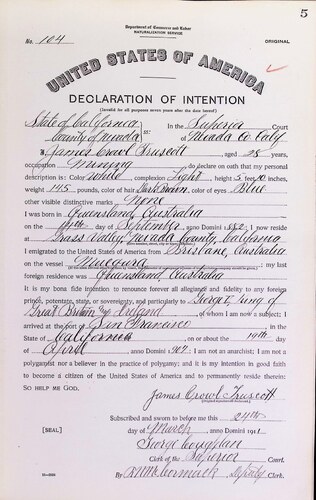 5
Department of Commerce and Labor
NATURALIZATION SERVICE
No. 104
ORIGINAL
UNITED STATES OF AMERICA
DECLARATION OF INTENTION
(Invalid for all purposes seven years after the date hereof)
State of California
County of Nevada ss: In the Superior Court
of Nevada Co Caly
I, James Crowl Truscott, aged 28 years,
occupation Mining, do declare on oath that my personal
description is: Color White, complexion Light, height 5 feet 10 inches,
weight 145 pounds, color of hair Dark Brown, color of eyes Blue
other visible distinctive marks None
I was born in Queensland, Australia
on the 11th day of September, anno Domini 1882; I now reside
at Grass Valley, Nevada County, California
I emigrated to the United States of America from Brisbane, Australia
on the vessel ; my last
foreign residence was Queensland Australia
It is my bona fide intention to renounce forever all allegiance and fidelity to any foreign
prince, potentate, state, or sovereignty, and particularly to George V, King of
Great Britain and Ireland, of whom I am now a subject; I
arrived at the port of San Francisco, in the
State of California, on or about the 19th day
of April, anno Domini 1907; I am not an anarchist; I am not a
polygamist nor a believer in the practice of polygamy; and it is my intention in good faith
to become a citizen of the United States of America and to permanently reside therein:
SO HELP ME GOD.
James Crowl Truscott
Subscribed and sworn to before me this 24th
[SEAL] day of March, anno Domini 1911
George
Clerk of the Superior Court.
By McCormack, Deputy Clerk.